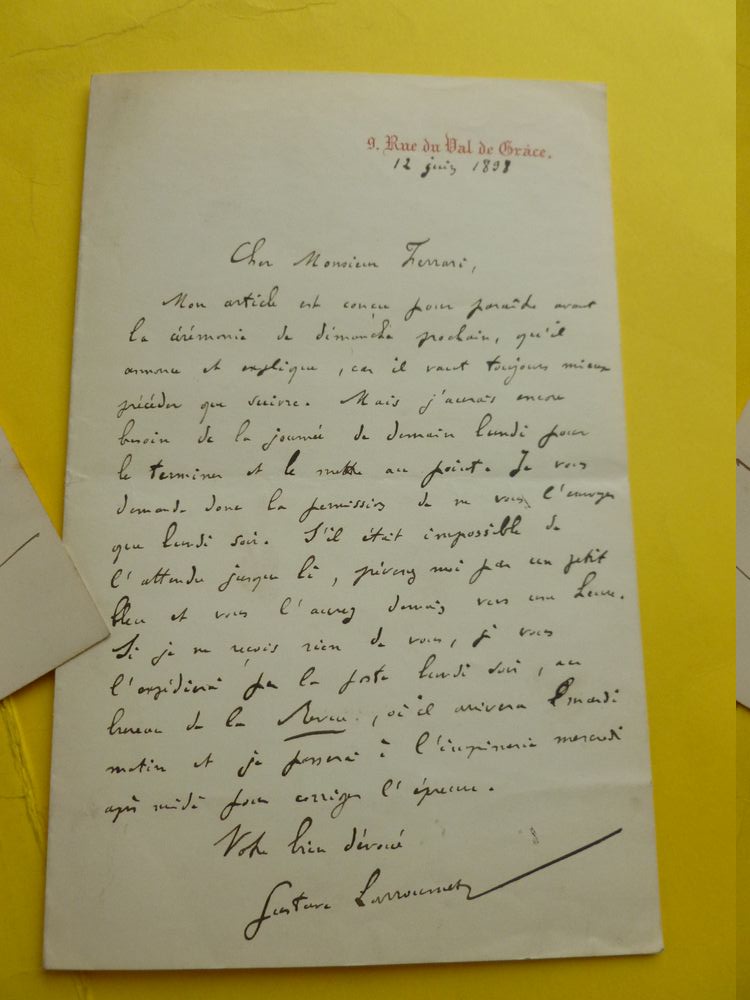 9. Rue du Val de Grâce.
12 juin 1898
Cher Monsieur Ferrari,
Mon article est conçu pour paraître avant
la cérémonie de dimanche prochain, qu'il
annonce et explique, car il vaut toujours mieux
précéder que suivre. Mais j'aurais encore
besoin de la journée de demain lundi pour
le terminer et le mettre au point. Je vous
demande donc la permission de ne vous l'envoyer
que lundi soir. S'il était impossible de
l'attendre jusque là, prévenez moi par un petit
bleu et vous l'aurez demain vers une heure.
Si je ne reçois rien de vous, je vous
l'expédierai par la poste lundi soir, au
bureau de la Revue, où il arrivera mardi
matin et je passerai à l'imprimerie mercredi
après midi pour corriger l'épreuve.
Votre bien dévoué
Gustave Larroumet